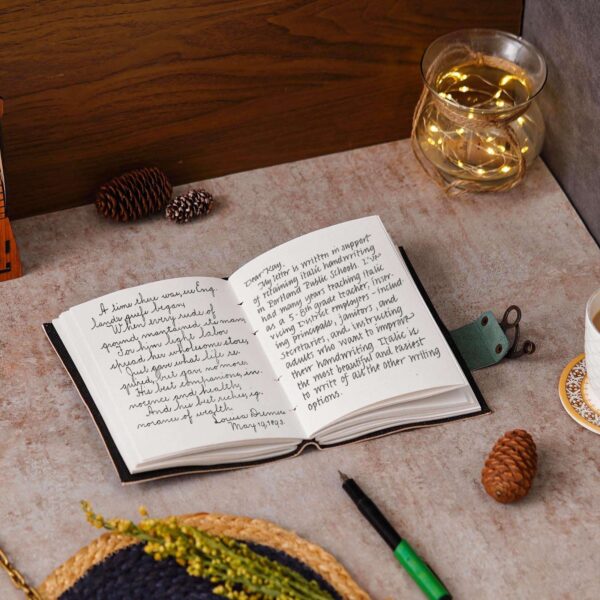 A time there was, ere Eng.
lands griefs began,
When every rood of
ground maintained its man,
For him light labor
spread her wholesome store,
Just gave what life re
quired, but gave no more,
His best companions, in.
nocence and health;
And his best riches, ig.
norance of wealth.
Louisa
May 19, 1893.
Dear Kay,
My letter is written in support
of returning italic handwriting
in Portland Public Schools. I've
had many years teaching italic
as a 5-8th grade teacher, inser-
vicing District employers - includ
ing principals, janitors, and
secretaries, and instructing
adults who want to improve
their handwriting. Italic is
the most beautiful and easiest
to write of all the other writing
options.